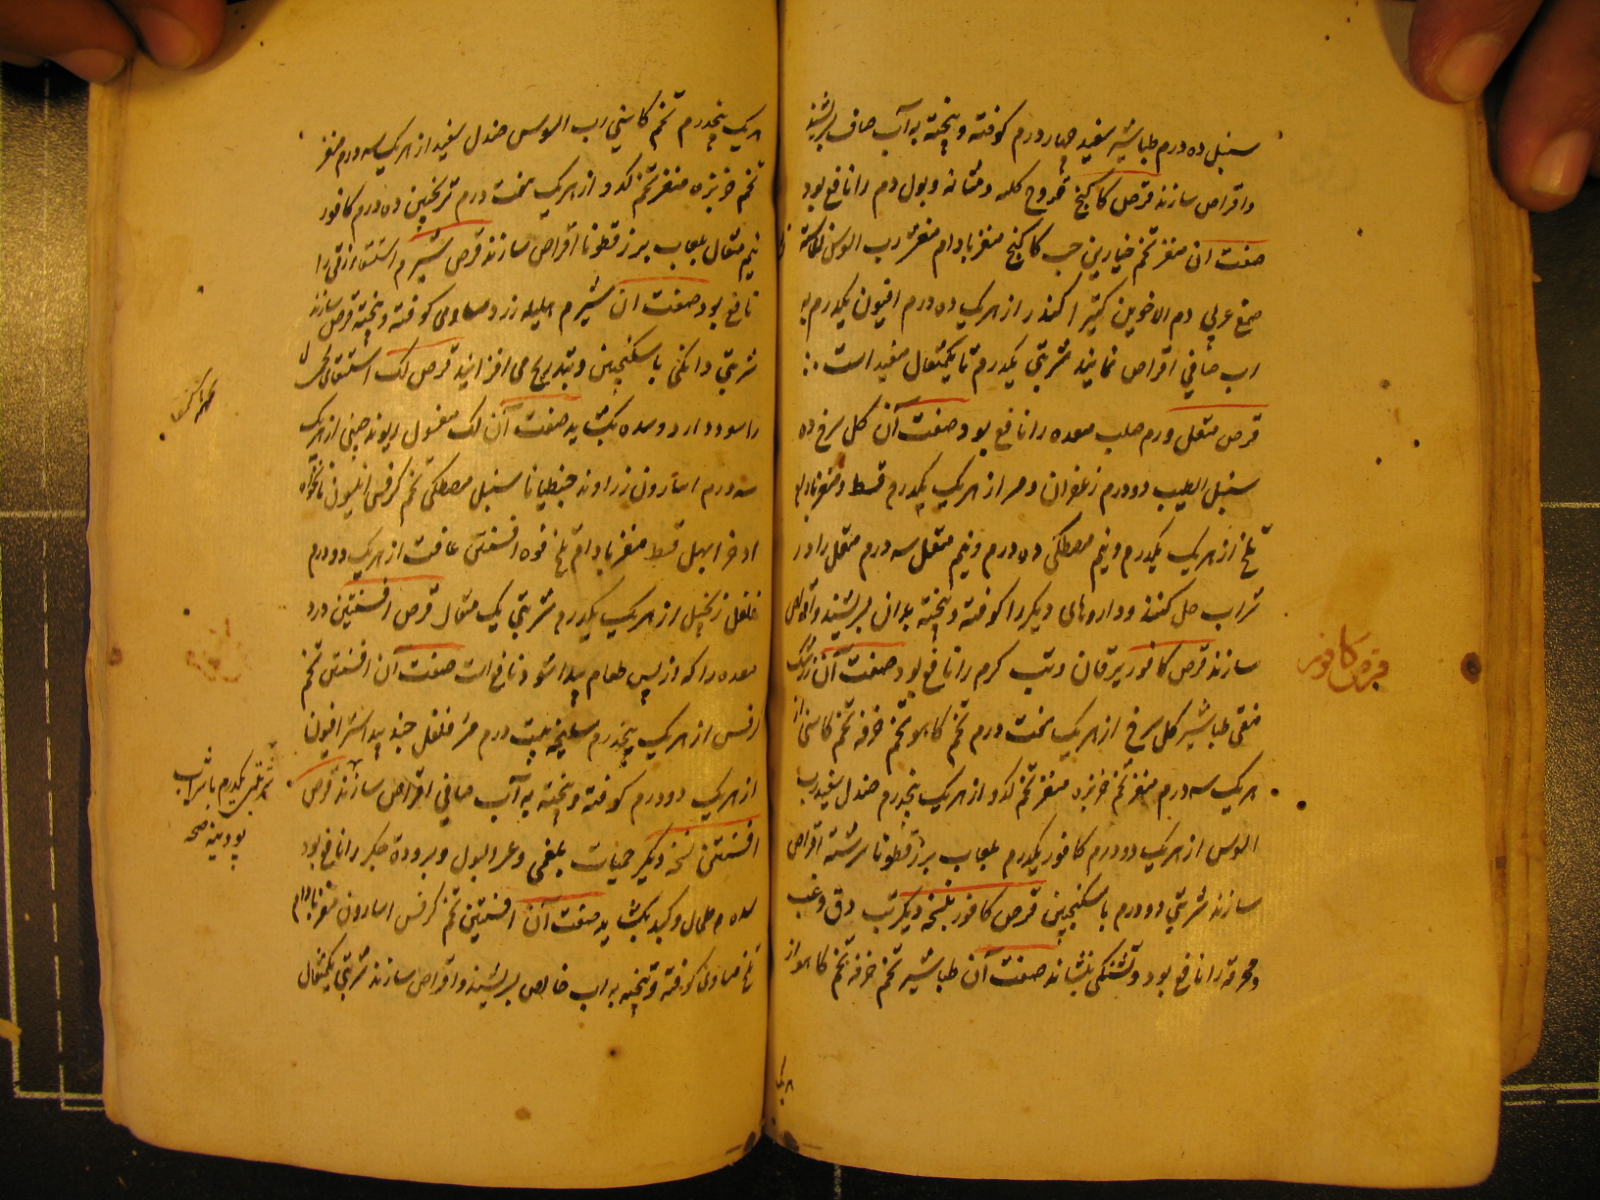 سنبل ده درم طباشیر سفید چهار درم کوفته و پیخته به آب صاف بسرشند
و اقراص سازند قرص کاکنج قروح کلیه و مثانه و بول دم را نافع بود
صفت ان مغز تخم خیارین حب کاکنج مغز بادام مقشر رب السوس نشاسته
صمغ عربی دم الاخوین کتیرا کندر از هریک ده درم افیون یکدرم به
اب صافی اقراص نمایند شربتی یکدرم تا یکمثقال مفید است
قرص مقل ورم صلب معده را نافع بود صفت آن کل سرخ ده
سنبل الطیب دو درم زعفران و مر از هریک یکدرم قسط و مغز بادام
تلخ از هریک یکدرم و نیم مصطکی ده درم و نیم مقل سه درم مقل را در
شراب حل کنند و داروهای دیکر را کوفته و پیخته بدان بسرشند و اقراص
سازند قرص کافور یرقان و تب کرم را نافع بود صفت آن زرشک
منقی طباشیر کل سرخ از هریک هفت درم تخم کاهو تخم خرفه تخم کاسنی از
هریک سه درم مغز تخم خربزه مغز تخم کدو از هریک پنجدرم صندل سفید رب
السوس از هریک دو درم کافور یکدرم بلعاب بزرقطونا سرشته اقراص
سازند شربتی دو درم با سکنجبین قرص کافور بنسخه دیکر تب دق و غب
و محرقه را نافع بود و تشنکی بنشاند صفت آن طباشیر تخم خرفه تخم کاهو از
هریک
قرص کافور
هریک پنجدرم تخم کاسنی رب السوس صندل سفید از هریک سه درم مغز
تخم خربزه مغز تخم کدو از هریک هفت درم ترنجبین ده درم کافور
نیم مثقال بلعاب بزرقطونا اقراص سازند قرص شبرم استسقاء زقی را
نافع بود صفت ان شبرم هلیله زرد مساوی کوفته و پیخته قرص سازند
شربتی دانکی با سکنجبین و بتدریج می افزایند قرص لک استسقاء لحمی
را سود دارد و سده بکشاید صفت آن لک مغسول ریوند چینی از هریک
سه درم اسارون زراوند جنطیانا سنبل مصطکی تخم کرفس انیسون نانخواه
اذخر ابهل قسط مغز بادام تلخ فوه افسنتین غافت از هریک دو درم
فلفل زنجبیل از هریک یکدرم شربتی یک مثقال قرص افسنتین درد
معده را که از پس طعام پیدا شود نافع است صفت آن افسنتین تخم
کرفس از هریک پنجدرم سلیخه بیست درم مر فلفل جند بیدستر افیون
از هریک دو درم کوفته و پیخته به آب صافی اقراص سازند قرص
افسنتین نسخه دیکر حمیات بلغمی و عسر البول و برودة جکر را نافع بود
سده طحال و کبد بکشاید صفت آن افسنتین تخم کرفس اسارون مغز بادام
تلخ مساوی کوفته و پیخته به اب خالص بسرشند و اقراص سازند شربتی یکمثقال
شربتی یکدرم با شراب
پودینه صح